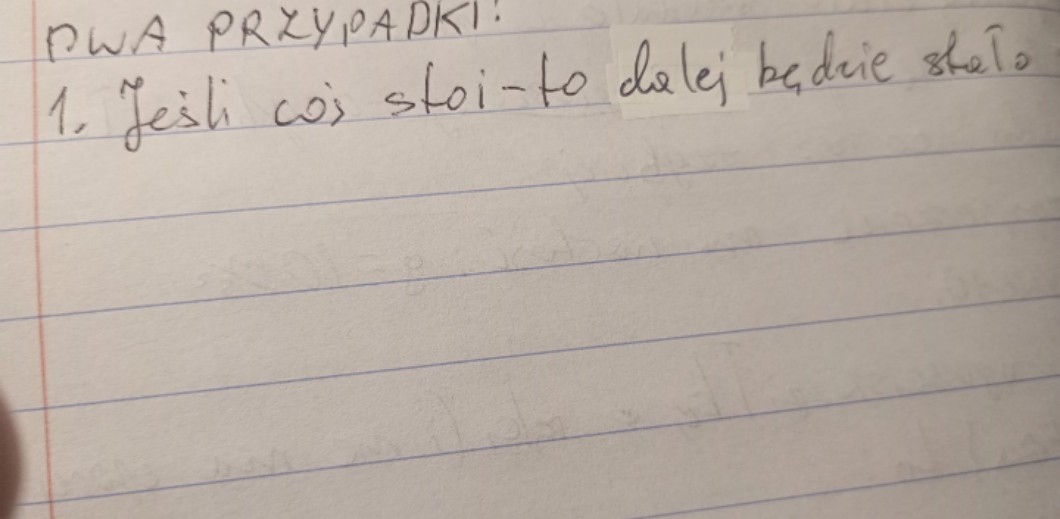 DWA PRZYPADKI:
1. Jeśli coś stoi - to dalej będzie stało